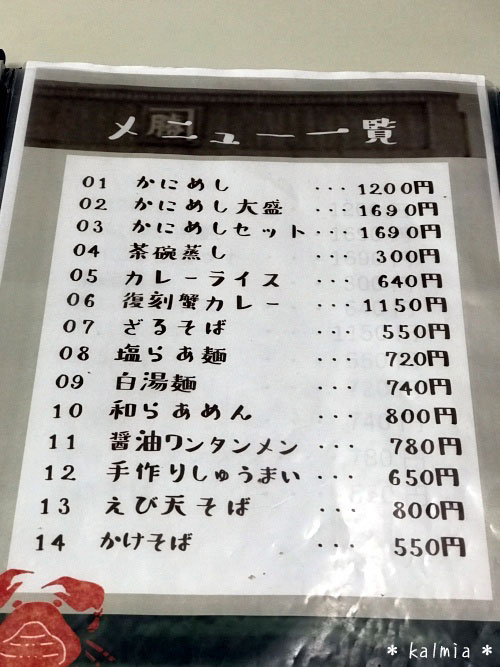 勝
メニュー一覧
01 かにめし ··· 1200円
02 かにめし大盛 ··· 1690円
03 かにめしセット ··· 1690円
04 茶碗蒸し ··· 300円
05 カレーライス ··· 640円
06 復刻蟹カレー ··· 1150円
07 ざるそば ··· 550円
08 塩らぁ麺 ··· 720円
09 白湯麺 ··· 740円
10 和らぁめん ··· 800円
11 醤油ワンタンメン ··· 780円
12 手作りしゅうまい ··· 650円
13 えび天そば ··· 800円
14 かけそば ··· 550円
* kalmia *